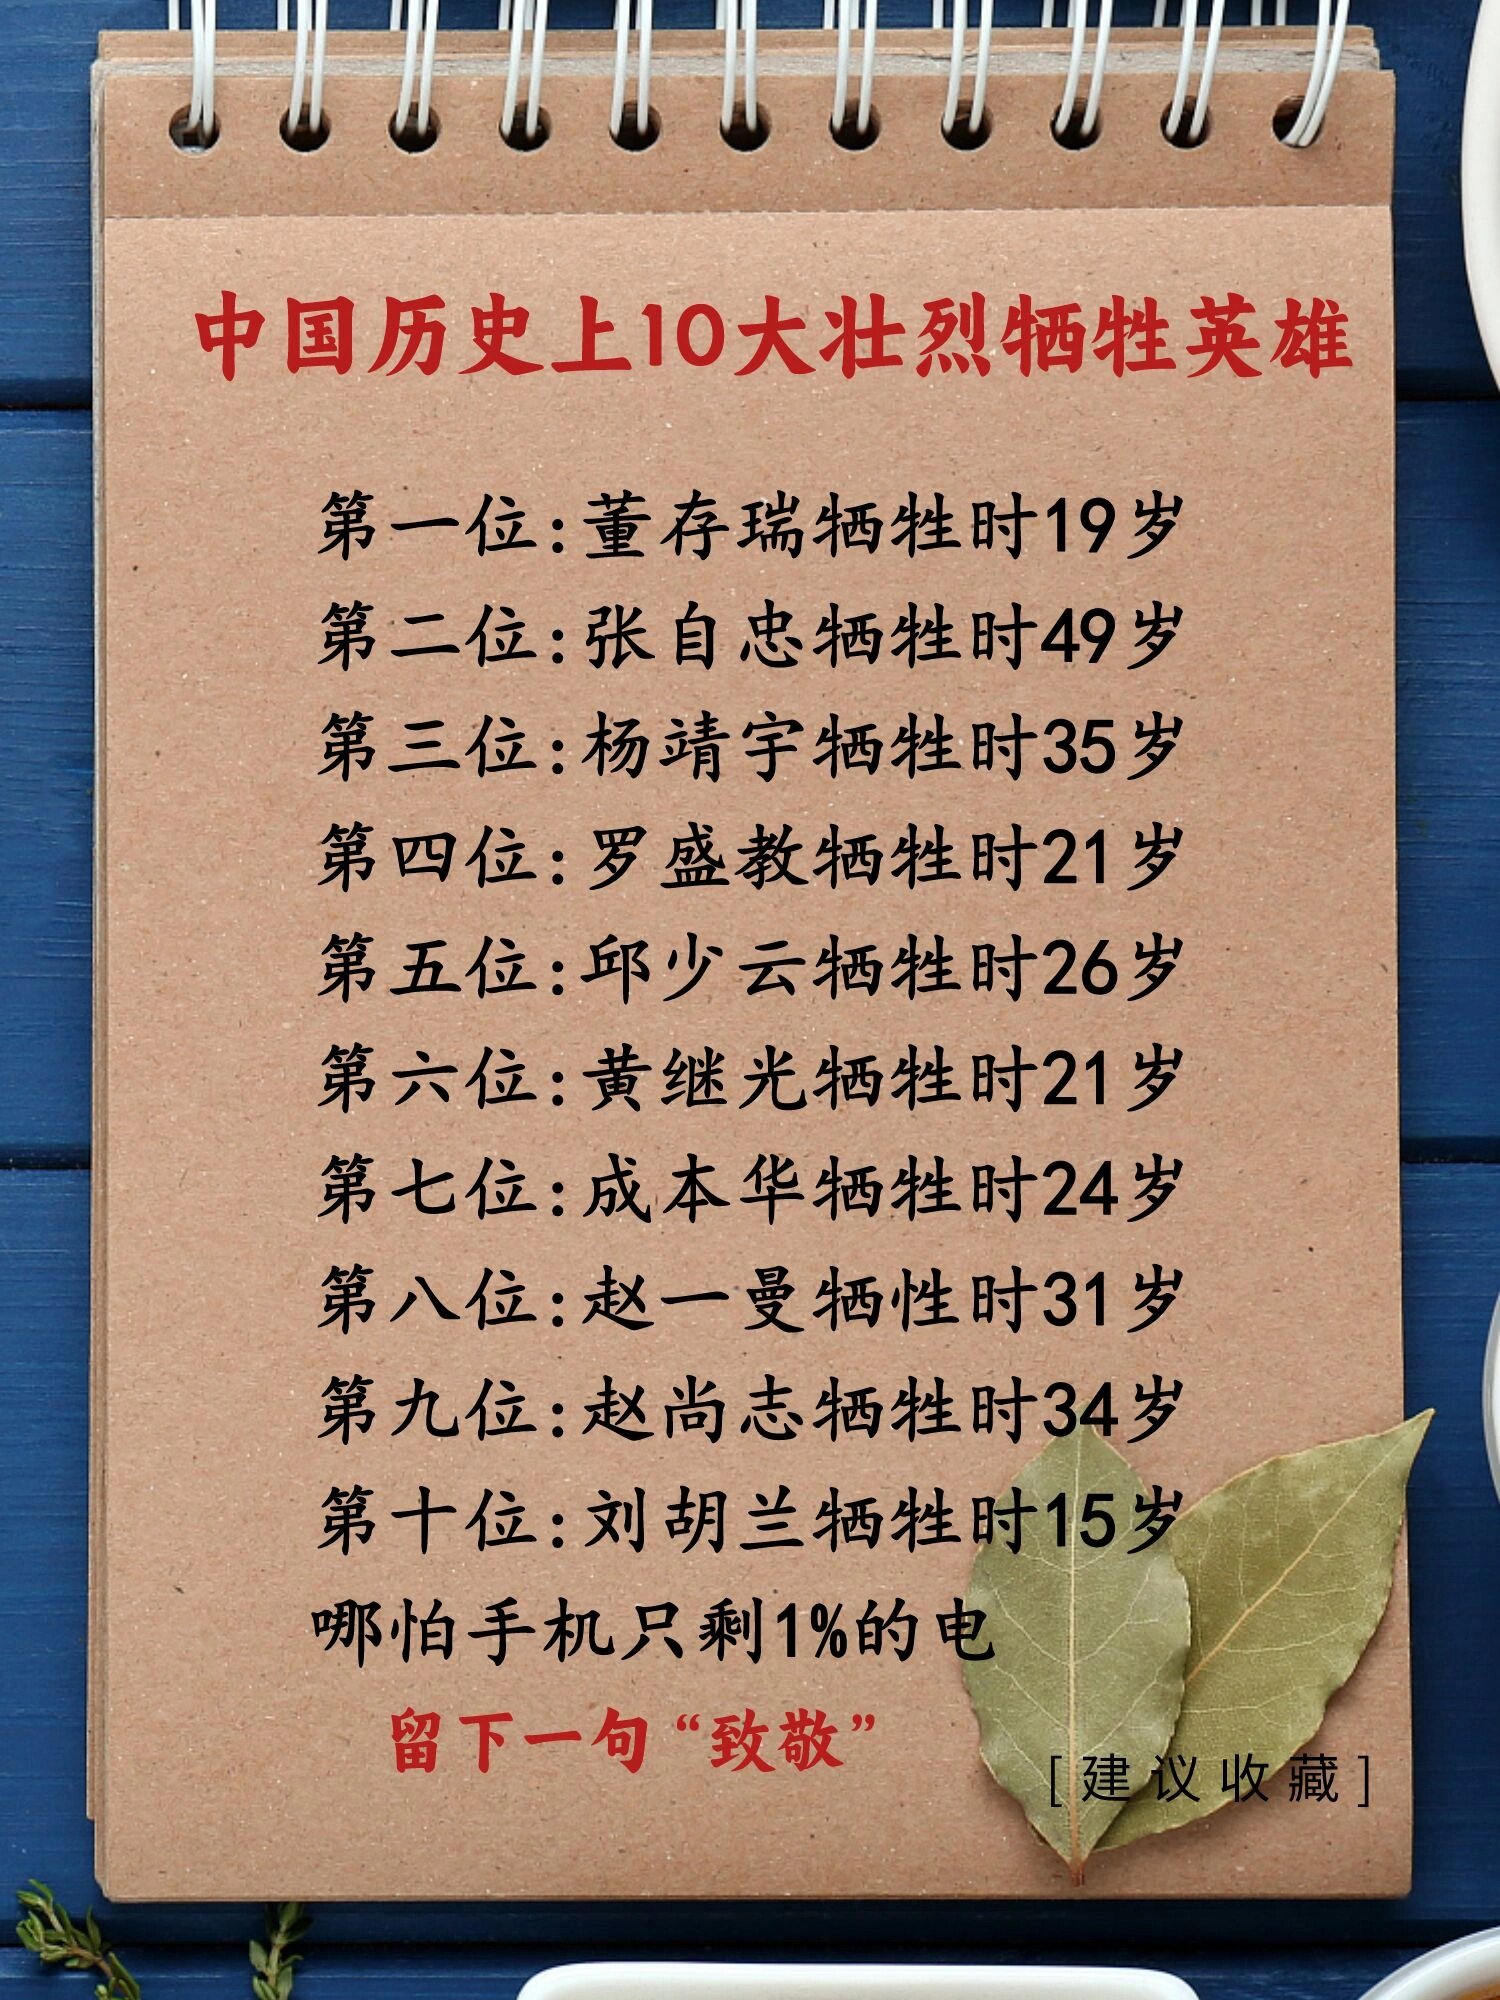 中国历史上10大壮烈牺牲英雄
第一位:董存瑞牺牲时19岁
第二位:张自忠牺牲时49岁
第三位:杨靖宇牺牲时35岁
第四位:罗盛教牺牲时21岁
第五位:邱少云牺牲时26岁
第六位:黄继光牺牲时21岁
第七位:成本华牺牲时24岁
第八位:赵一曼牺性时31岁
第九位:赵尚志牺牲时34岁
第十位:刘胡兰牺牲时15岁
哪怕手机只剩1%的电
留下一句“致敬”
[建议收藏]